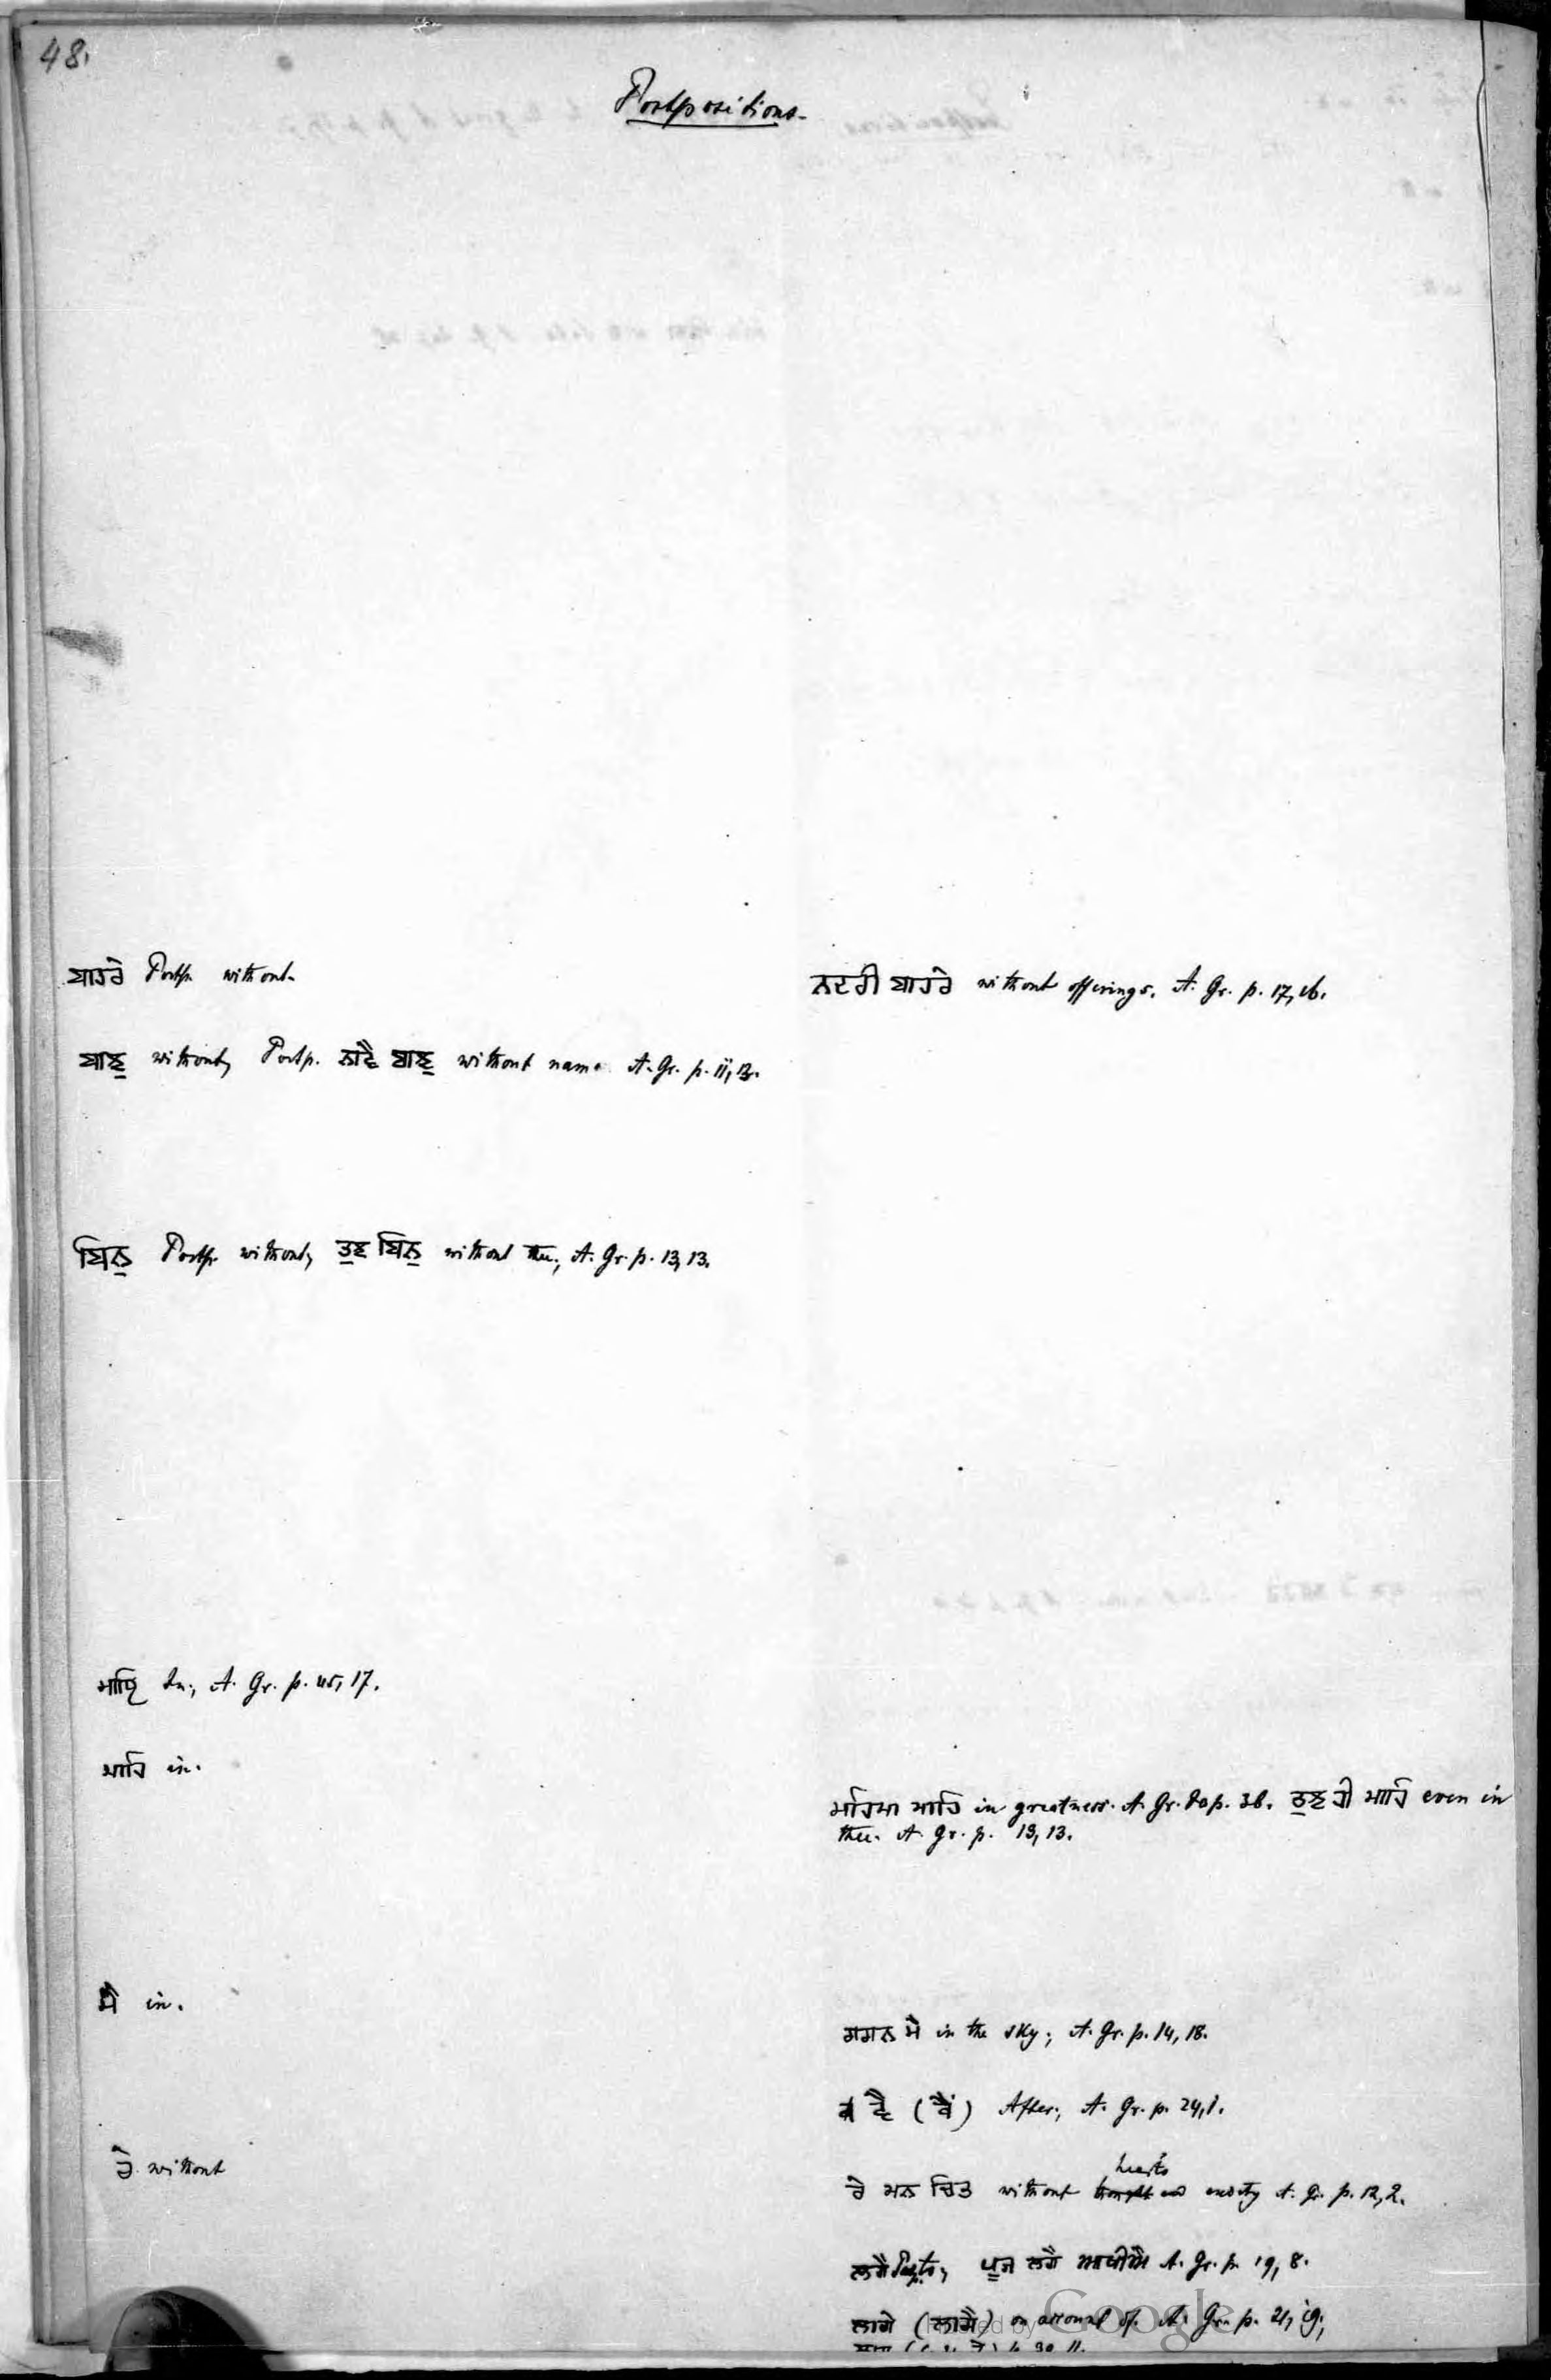 48.
Postpositions.
ਬਾਹਰੇ Postp. without.
ਨਦਰੀ ਬਾਹਰੇ without offerings. A. Gr. p. 17, 16.
ਬਾਝੁ without, Postp. ਨਾਵੈ ਬਾਝੁ without name A. Gr. p. 11, 13.
ਬਿਨੁ Postp. without, ਤੁਝ ਬਿਨੁ without thee, A. Gr. p. 13, 13.
ਮਾਹਿ In, A. Gr. p. 45, 17.
ਮਾਹਿ in.
ਮਹਿਮਾ ਮਾਹਿ in greatness. A. Gr. p. 38. ਤੁਝ ਹੀ ਮਾਹਿ even in
thee. A. Gr. p. 13, 13.
ਮੈ in.
ਗਗਨ ਮੈ in the sky; A. Gr. p. 14, 18.
ਵੈ ( ) After; A. Gr. p. 24, 1.
ਰੇ without
hearts
ਰੇ ਮਨ ਚਿਤ without A. Gr. p. 12, 2.
ਲਗੈ ਪੂਜ ਲਗੈ A. Gr. p. 19, 8.
ਲਾਗੇ (ਲਾਗੈ) on account of. A. Gr. p. 21, 19,
Google